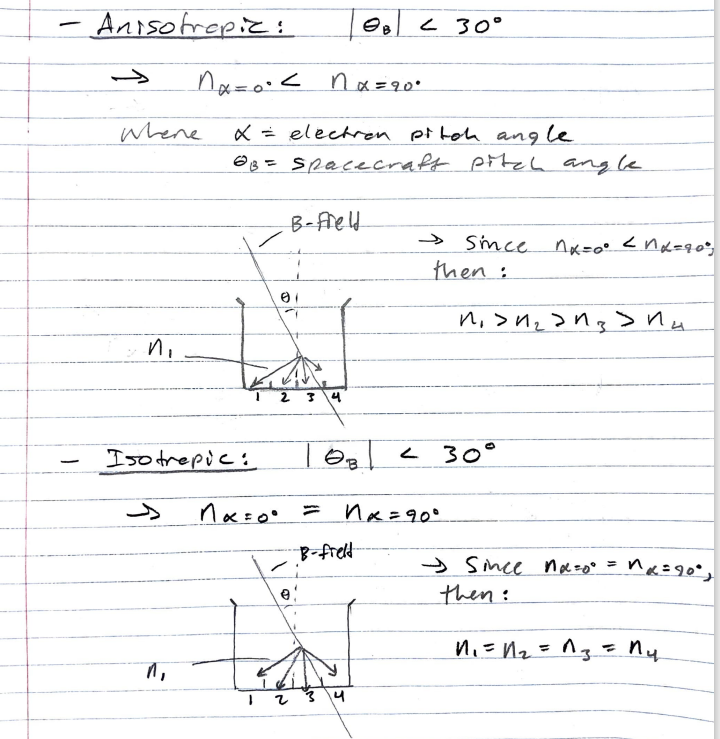 - Anisotropic: |θ_B| < 30°
→ n_α=0° < n_α=90°
where α = electron pitch angle
θ_B = spacecraft pitch angle
B-field
→ Since n_α=0° < n_α=90°,
then:
θ
n₁ > n₂ > n₃ > n₄
n₁
1 2 3 4
- Isotropic: |θ_B| < 30°
→ n_α=0° = n_α=90°
B-field
→ Since n_α=0° = n_α=90°,
then:
θ
n₁ = n₂ = n₃ = n₄
n₁
1 2 3 4